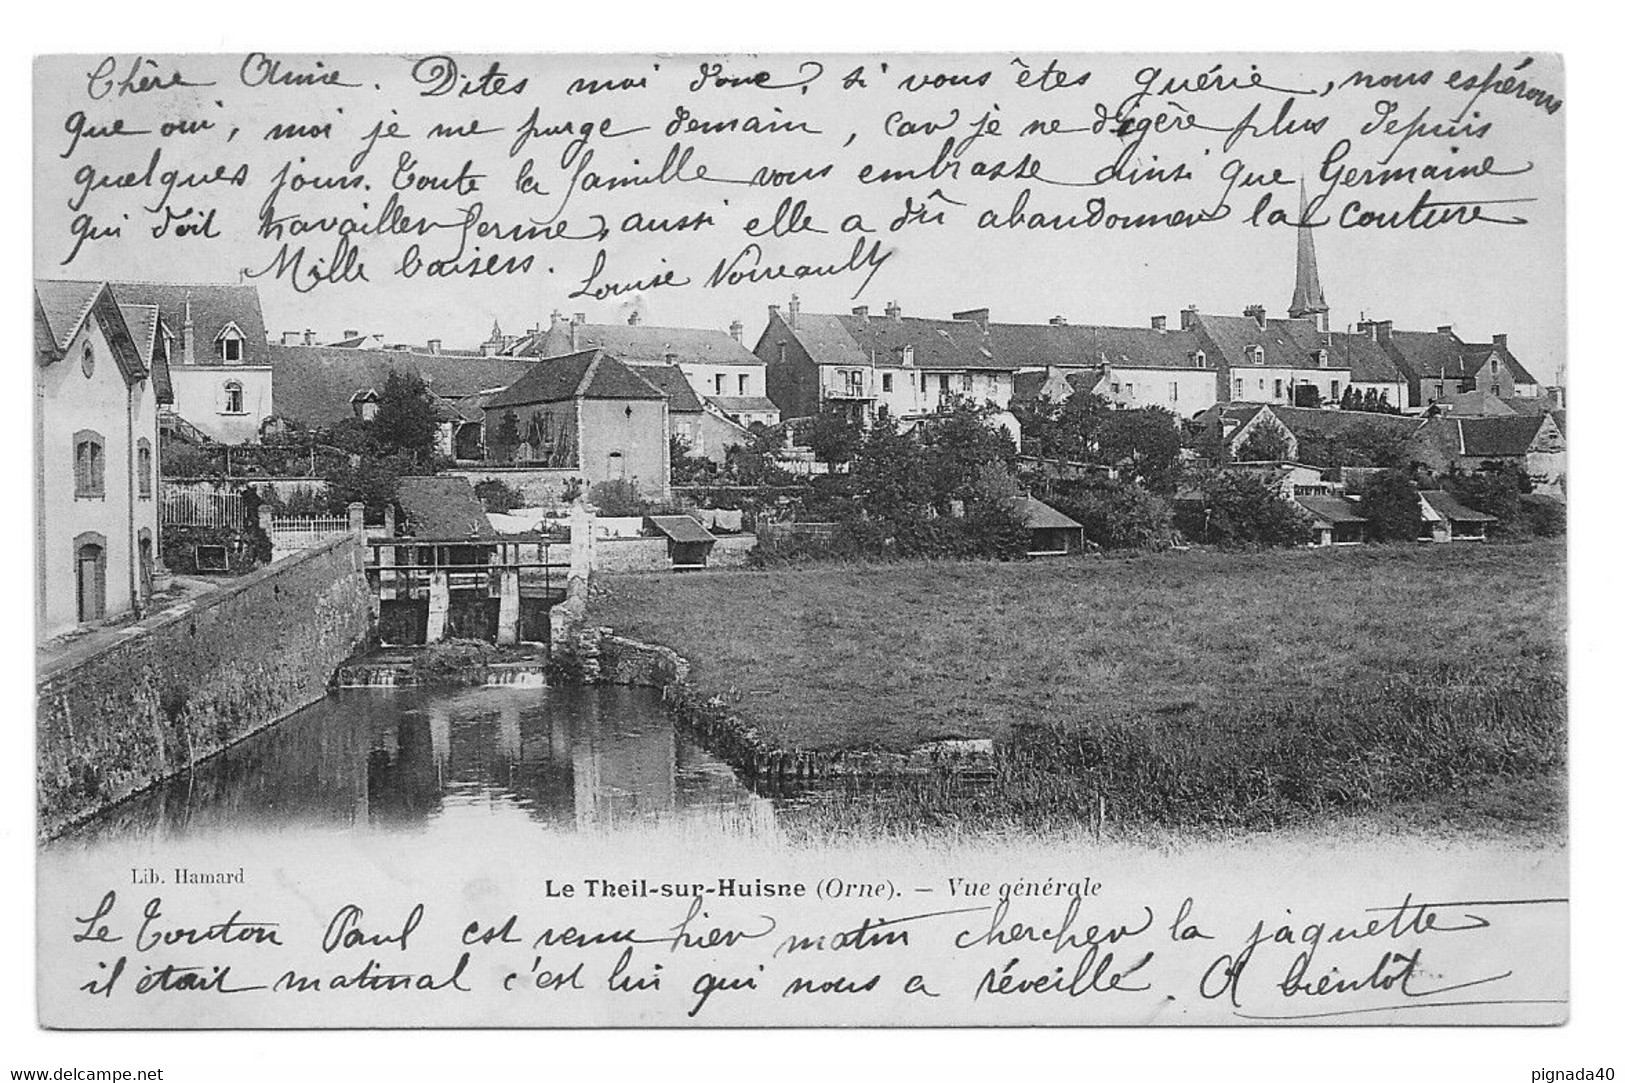 Chère Amie. Dites moi donc, si vous êtes guérie, nous espérons
que oui, moi je me purge demain, car je ne digère plus depuis
quelques jours. Toute la famille vous embrasse ainsi que Germaine
qui doit travailler ferme, aussi elle a dû abandonner la couture
Mille baisers. Louise
Lib. Hamard
Le Theil-sur-Huisne (Orne). — Vue générale
Le Tonton Paul est venu hier matin chercher la jaquette
il était matinal c'est lui qui nous a réveillé. A bientôt
www.delcampe.net
pignada40